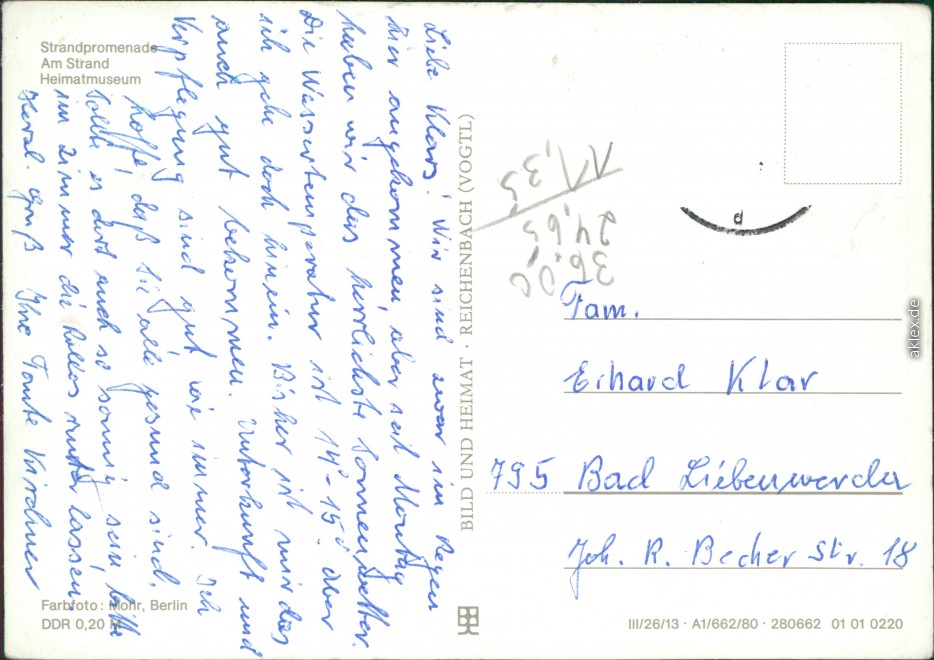 Strandpromenade
Am Strand
Heimatmuseum
Liebe Klars! Wir sind zwar im Regen
hier angekommen, aber seit Montag
haben wir das herrlichste Sonnenwetter.
Die Wassertemperatur ist 14°-15° aber
ich gehe doch hinein. Bisher ist mir das
auch gut bekommen. Unterkunft und
Verpflegung sind gut wie immer. Ich
hoffe, daß Sie alle gesund sind.
Sollte es dort auch so sonnig sein, bitte
im Zimmer die Rollos runter lassen.
Herzl. Gruß Ihre Tante Kirchner
Farbfoto: Mohr, Berlin
DDR 0,20 M
BILD UND HEIMAT · REICHENBACH (VOGTL)
36.00
24,65
11,35
d
Fam.
Erhard Klar
795 Bad Liebenwerda
Joh. R. Becher Str. 18
III/26/13 · A1/662/80 · 280662 01 01 0220
aklex.de